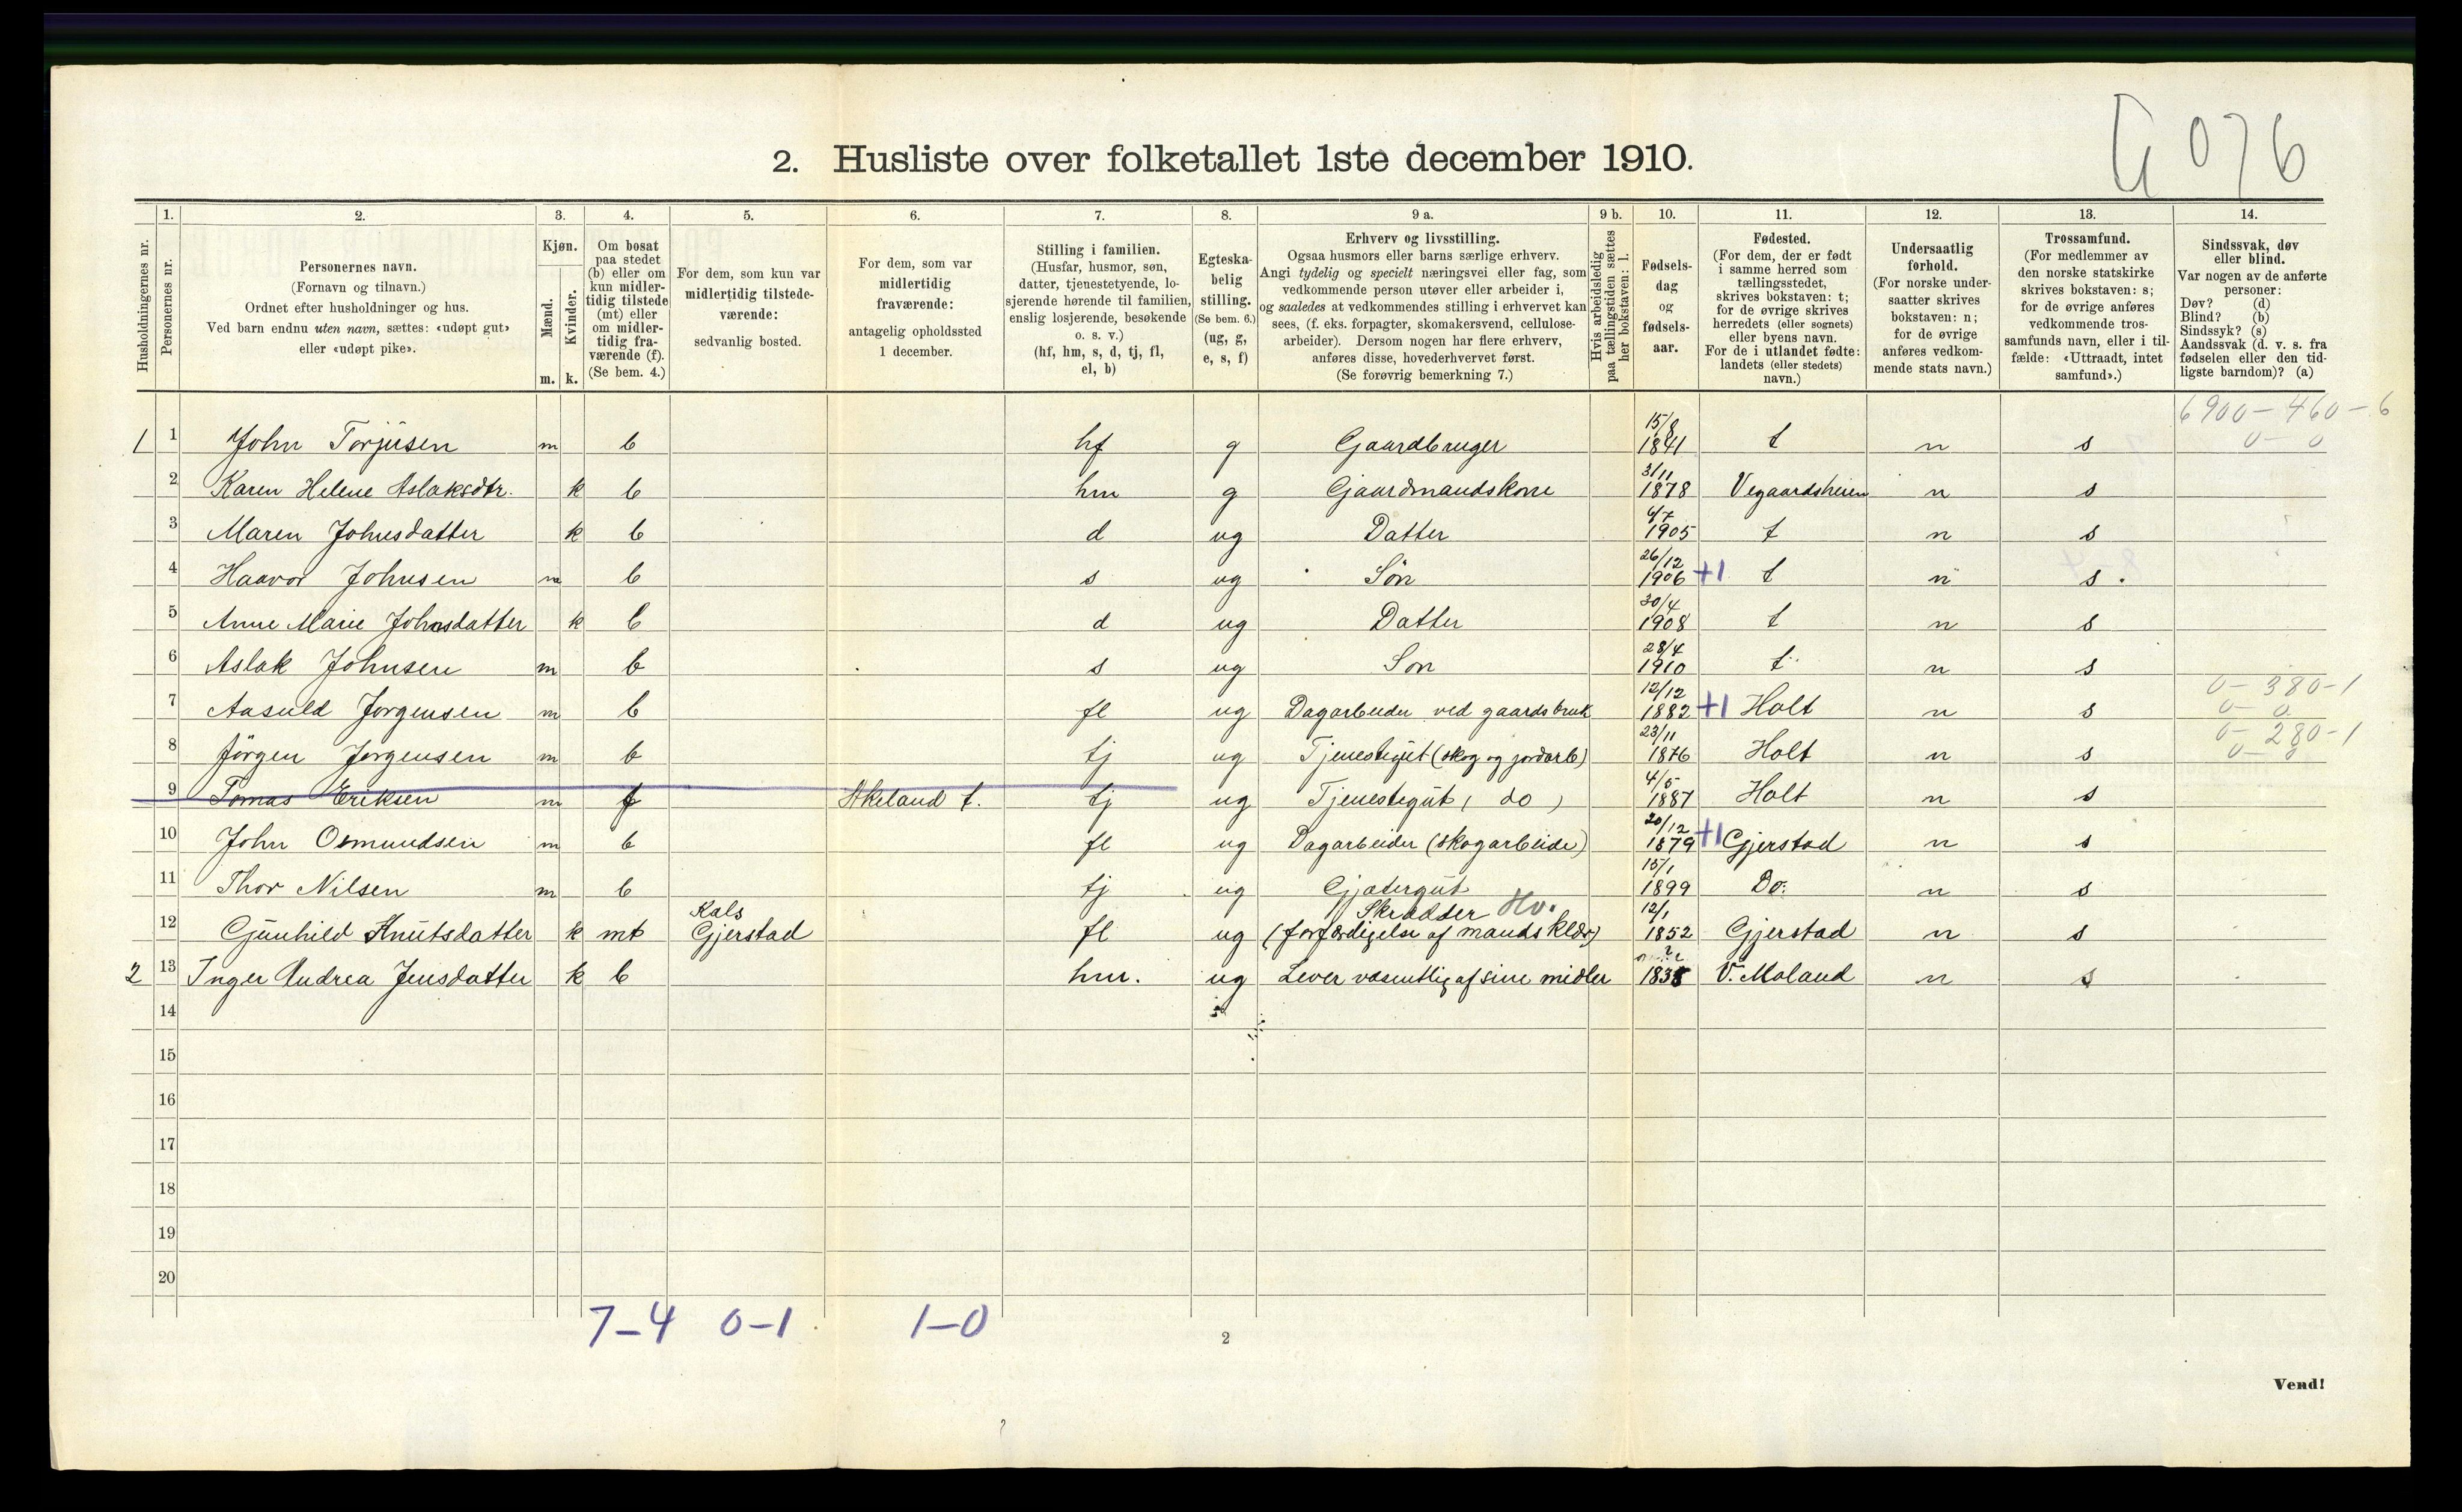 G 076
2. Husliste over folketallet 1ste december 1910.
Husholdningernes nr.
1. Personernes nr.
2. Personernes navn. (Fornavn og tilnavn.) Ordnet efter husholdninger og hus. Ved barn endnu uten navn, sættes: «udøpt gut» eller «udøpt pike».
3. Kjøn. Mænd. m. Kvinder. k.
4. Om bosat paa stedet (b) eller om kun midlertidig tilstede (mt) eller om midlertidig fraværende (f). (Se bem. 4.)
5. For dem, som kun var midlertidig tilstedeværende: sedvanlig bosted.
6. For dem, som var midlertidig fraværende: antagelig opholdssted 1 december.
7. Stilling i familien. (Husfar, husmor, søn, datter, tjenestetyende, losjerende hørende til familien, enslig losjerende, besøkende o. s. v.) (hf, hm, s, d, tj, fl, el, b)
8. Egteskabelig stilling. (Se bem. 6.) (ug, g, e, s, f)
9 a. Erhverv og livsstilling. Ogsaa husmors eller barns særlige erhverv. Angi tydelig og specielt næringsvei eller fag, som vedkommende person utøver eller arbeider i, og saaledes at vedkommendes stilling i erhvervet kan sees, (f. eks. forpagter, skomakersvend, cellulosearbeider). Dersom nogen har flere erhverv, anføres disse, hovederhvervet først. (Se forøvrig bemerkning 7.)
9 b. Hvis arbeidsledig paa tællingstiden sættes her bokstaven: l.
10. Fødselsdag og fødselsaar.
11. Fødested. (For dem, der er født i samme herred som tællingsstedet, skrives bokstaven: t; for de øvrige skrives herredets (eller sognets) eller byens navn. For de i utlandet fødte: landets (eller stedets) navn.)
12. Undersaatlig forhold. (For norske undersaatter skrives bokstaven: n; for de øvrige anføres vedkommende stats navn.)
13. Trossamfund. (For medlemmer av den norske statskirke skrives bokstaven: s; for de øvrige anføres vedkommende trossamfunds navn, eller i tilfælde: «Uttraadt, intet samfund».)
14. Sindssvak, døv eller blind. Var nogen av de anførte personer: Døv? (d) Blind? (b) Sindssyk? (s) Aandssvak (d. v. s. fra fødselen eller den tidligste barndom)? (a)
6900-460-6
0-0
1 1 John Torjüsen m b hf g Gaardbruger 15/8 1841 t n s
2 Karen Helene Aslaksdtr. k b hm g Gjaardmandskone 3/11 1878 Vegaardsheien n s
3 Maren Johnsdatter k b d ug Datter 6/7 1905 t n s
4 Haavor Johnsen m b s ug Sön 26/12 1906 +1 t n s.
5 Anne Marie Johnsdatter k b d ug Datter 30/4 1908 t n s
6 Aslak Johnsen m b s ug Son 28/4 1910 t n s
0-380-1
0-0
7 Aasuld Jorgensen m b fl ug Dagarbeider ved gaardsbruk 12/12 1882 +1 Holt n s
0-280-1
0-0
8 Jörgen Jorgensen m b tj ug Tjenestegüt (skog og jordarb) 23/11 1876 Holt n s
9 Tomas Eriksen m f Akeland t. tj ug Tjenestegüt ( do ) 4/5 1887 Holt n s
10 John Osmundsen m b fl ug Dagarbeider (skogarbeide) 20/12 1879 +1 Gjerstad n s
11 Thor Nilsen m b tj ug Gjætergüt 15/1 1899 Do: n s
12 Günhild Knütsdatter k mt Kals Gjerstad fl ug Skrædder Hv. (forfærdigelse af mands klær) 12/1 1852 Gjerstad n s
2 13 Inger Andrea Jensdatter k b hm. ug Lever væsentlig af sine midler 1835 V. Moland n s
14
15
16
17
18
19
20
7-4 0-1 1-0
2
Vend!